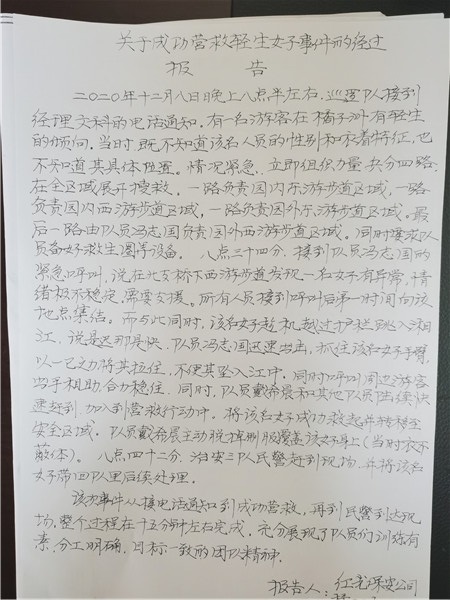 关于成功营救轻生女子事件的经过
报 告
二〇二〇年十二月八日晚上八点半左右，巡逻队接到
经理文科的电话通知，有一名游客在橘子洲有轻生
的倾向。当时既不知道该名人员的性别和衣着特征，也
不知道其具体位置。情况紧急，立即组织力量共分四路
在全区域展开搜救，一路负责园内东游步道区域，一路
负责园内西游步道区域，一路负责园外东游步道区域。最
后一路由队员冯志国负责园外西游步道区域。同时要求队
员备好救生圈等设备。 八点三十四分，接到队员冯志国的
紧急呼叫，说在北支桥下西游步道发现一名女子有异常，情
绪极不稳定，需要支援。所有人员接到呼叫后第一时间向该
地点集结。而与此同时，该名女子趁机越过护栏跳入湘
江，说是迟那是快，队员冯志国迅速出击，抓住该名女子手臂，
以一己之力将其拉住，不使其坠入江中。同时呼叫周边游客
出手相助，合力稳住。同时，队员戴希晨和其他队员陆续快
速赶到，加入到营救行动中。将该名女子成功救起并转移至
安全区域。队员戴希晨主动脱掉制服覆盖该女身上（当时衣不
蔽体）。 八点四十二分，治安三队民警赶到现场，并将该名
女子带回队里后续处理。
该次事件从接电话通知到成功营救，再到民警到达现
场，整个过程在十五分钟左右完成，充分展现了队员们训练有
素，分工明确，目标一致的团队精神。
报告人：红 保安公司